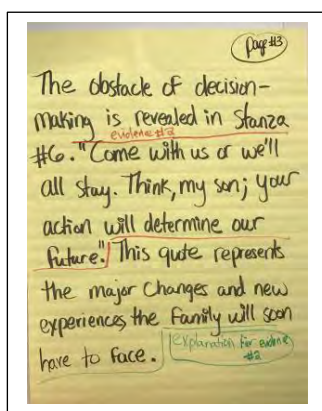 Page #3
The obstacle of decision-
making is revealed in Stanza
evidence #2
#6. "Come with us or we'll
all stay. Think, my son; your
action will determine our
future." This qute represents
the major changes and new
experiences the family will soon
have to face.
explanation for evidence
#2